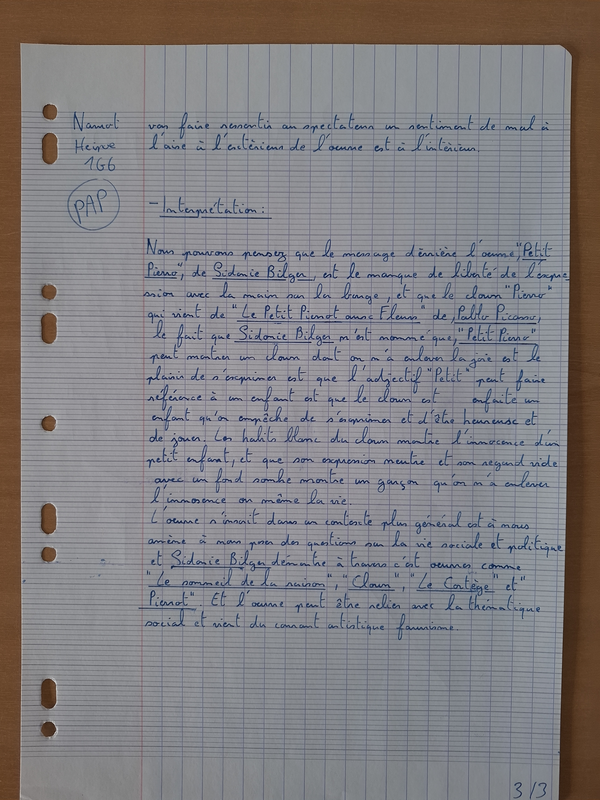 Namot
Heïpue
1G6
PAP
vas faire ressentir au spectateurs un sentiment de mal à
l'aise à l'extérieur de l'oeuvre est à l'intérieur.
- Interprétation :
Nous pouvons pensez que le message dérrière l'oeuvre, "Petit
Pierro", de Sidonie Bilger, est le manque de liberté de l'expre
ssion avec la main sur la bouge, et que le clown "Pierro"
qui vient de "Le Petit Pierrot aux Fleurs" de, Pablo Picasso,
le fait que Sidonie Bilger m'est nommé que, "Petit Pierro"
peut montrer un clown dont on m'a enlever la joie est le
plaisir de s'exprimer est que l'adjectif "Petit" peut faire
référence à un enfant est que le clown est enfaite un
enfant qu'on empêche de s'exprimer et d'être heureuse et
de jouer. Les habits blanc du clown montre l'innocence d'un
petit enfant, et que son expression neutre et son regard vide
avec un fond sombre montre un garçon qu'on m'a enlever
l'innosence ou même la vie.
L'oeuvre s'inscrit dans un contexte plus général est à nous
amène à nous poser des questions sur la vie sociale et politique
et Sidonie Bilger démontre à travers c'est oeuvres comme
"Le sommeil de la raison", "Clown", "Le Cortège" et "
Pierrot". Et l'oeuvre peut être relier avec la thématique
social et vient du courant artistique fauvisme.
3/3